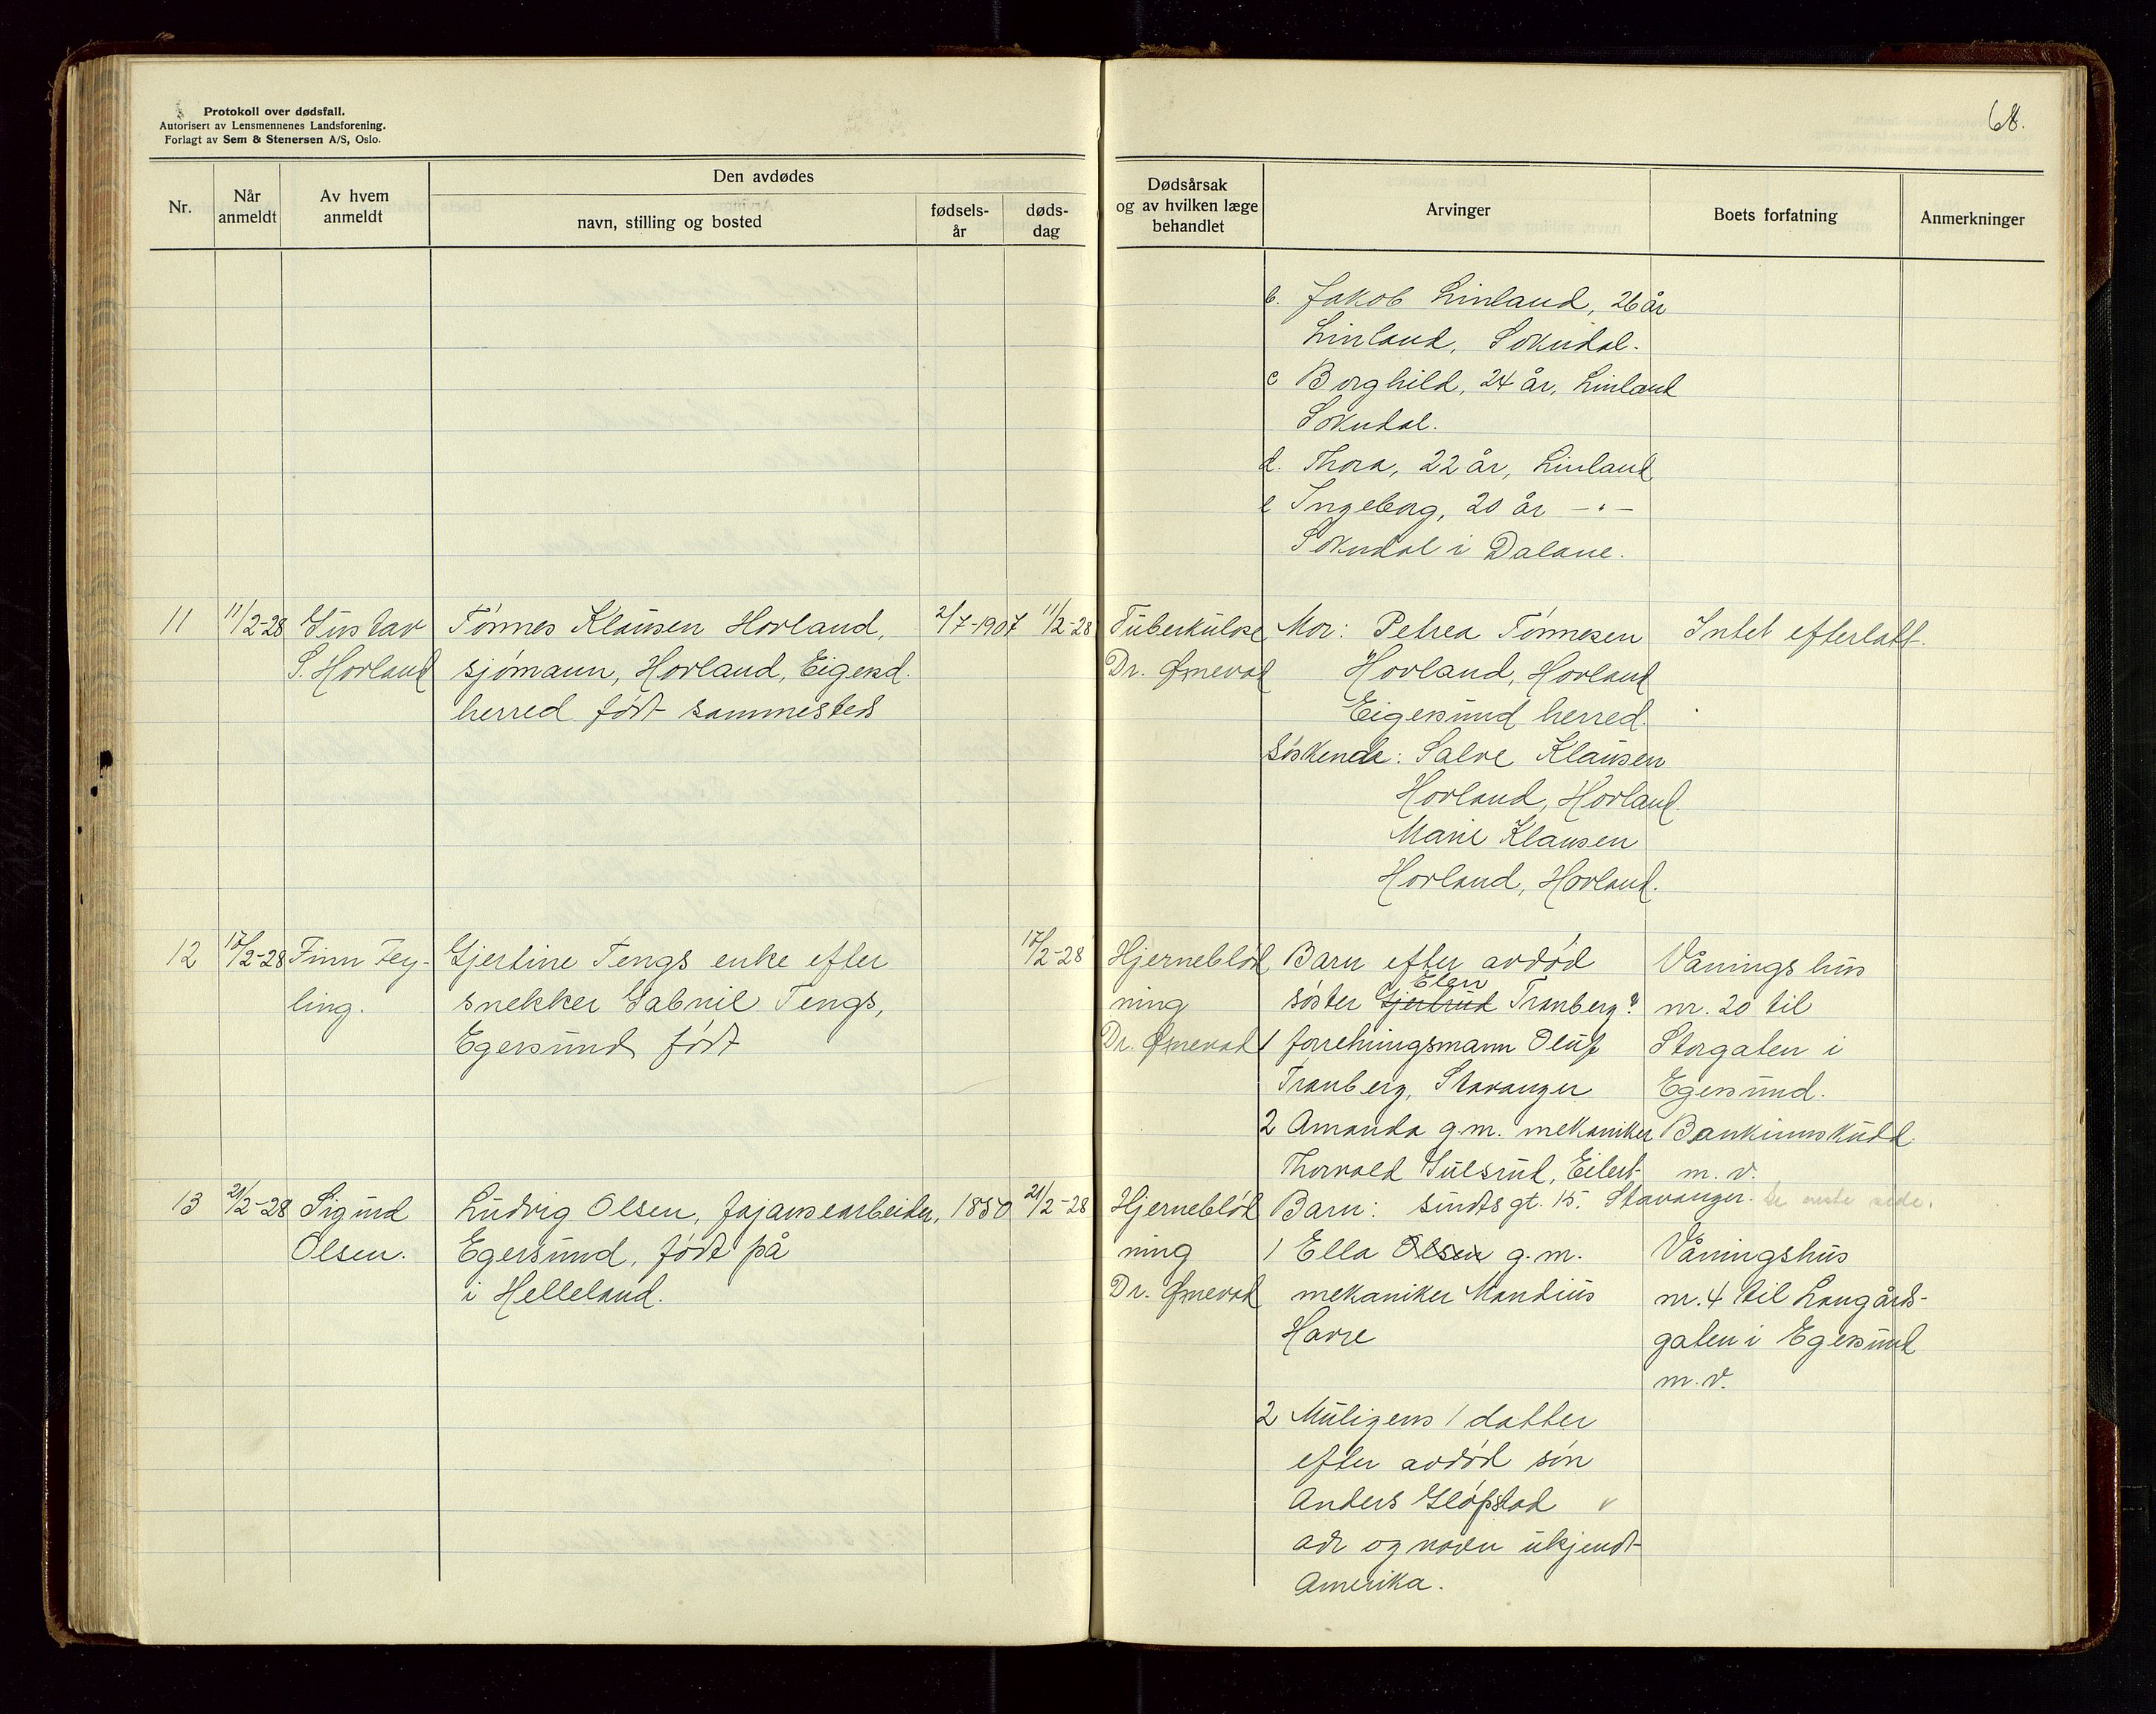 Protokoll over dødsfall.
Autorisert av Lensmennenes Landsforening.
Forlagt av Sem & Stenersen A/S, Oslo.
68.
Nr.
Når anmeldt
Av hvem anmeldt
Den avdødes
navn, stilling og bosted
fødsels-
år
døds-
dag
Dødsårsak
og av hvilken læge
behandlet
Arvinger
Boets forfatning
Anmerkninger
b. Jakob Linland, 26 år
Linland, Sokndal.
c Borghild, 24 år, Linland
Sokndal.
d. Thora, 22 år, Linland
e Ingeborg, 20 år -"-
Sokndal i Dalane.
11
11/2-28
Gustav
S. Hovland
Tönnes Klausen Hovland,
sjömann, Hovland, Eigersd.
herred födt sammesteds
2/7-1907
11/2-28
Tuberkulose
Dr.
Mor: Petrea Tönnesen
Hovland, Hovland
Eigersund herred.
Söskende: Salve Klausen
Hovland, Hovland.
Marie Klausen
Hovland, Hovland.
Intet efterlatt.
12
17/2-28
Finn Fey-
ling.
Gjertine Tengs enke efter
snekker Gabriel Tengs,
Egersund födt
17/2-28
Hjerneblöd
ning
Dr.
Barn efter avdöd
Elen
söster Gjertrud Tranberg:
1 forretningsmann Oluf
Tranberg, Stavanger
2 Amanda g.m. mekaniker
Thorvald Gulsrud, Eilert
sundts gt. 15. Stavanger.
Vånings hus
nr. 20 til
Storgaten i
Egersund.
Bankinnskudd
m.v.
Se neste side.
13
21/2-28
Sigurd
Olsen.
Ludvig Olsen, fajansearbeider,
Egersund, födt på
i Helleland.
1850
21/2-28
Hjerneblöd
ning
Dr.
Barn:
1 Ella Olsen g.m.
mekaniker Mandius
Havre
2 Muligens 1 datter
efter avdöd sön
Anders Glöpstad
adr og navn ukjendt
Amerika.
Våningshus
nr. 4 til Langårds-
gaten i Egersund
m.v.